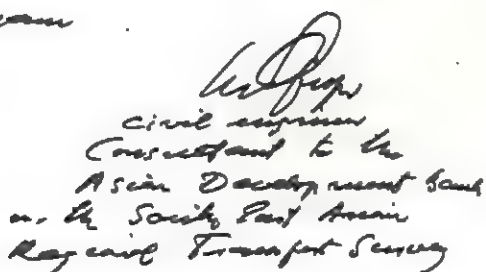 civil engineer
Consultant to the
Asian Development Bank
on the South East Asian
Regional Transport Survey